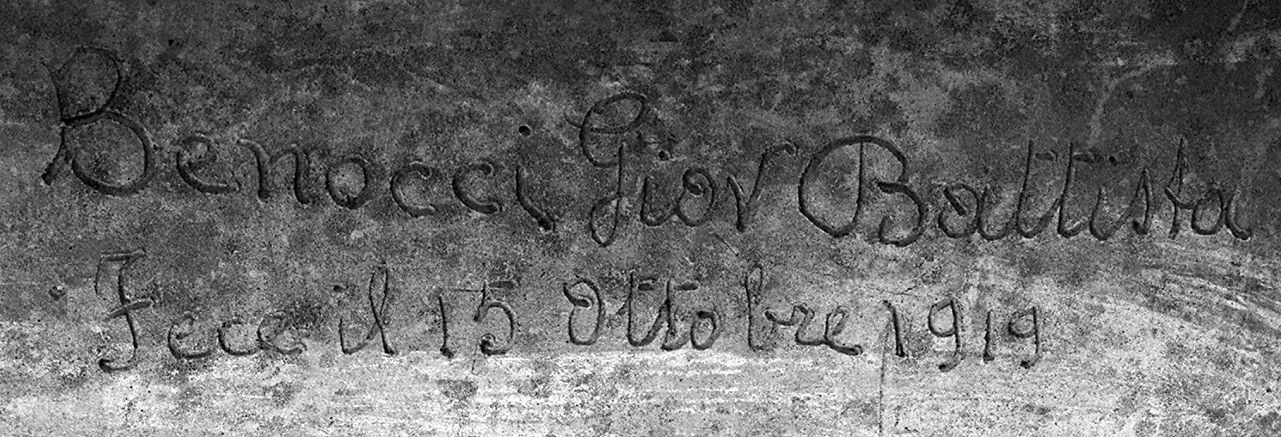 Benocci Giov Battista
Fece il 15 Ottobre 1919